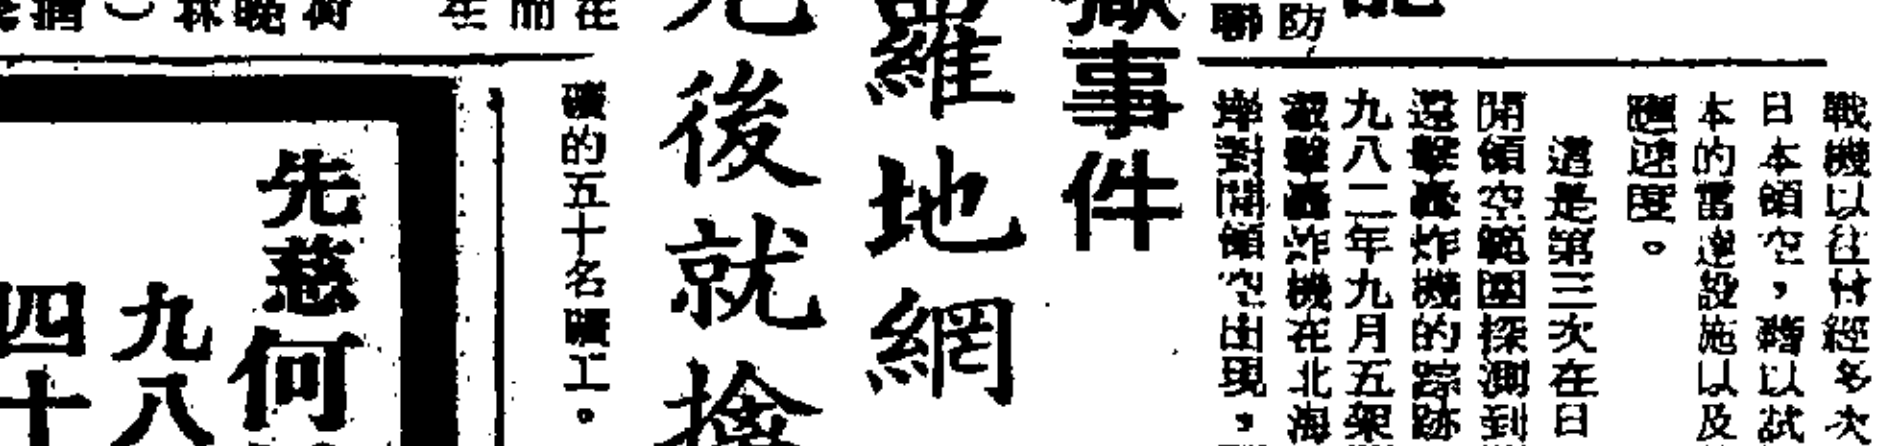 戰機以往曾經多次
日本領空，藉以試
本的雷達設施以及
應速度。
這是第三次在日
開領空範圍探測到
遠擊轟炸機的踪跡
九八二年九月五架
襲擊轟炸機在北海
岸對開領空出現，
聯
防
事件
羅地網
後就擒
在
而
礦的五十名礦工。
先慈何
九八
四十